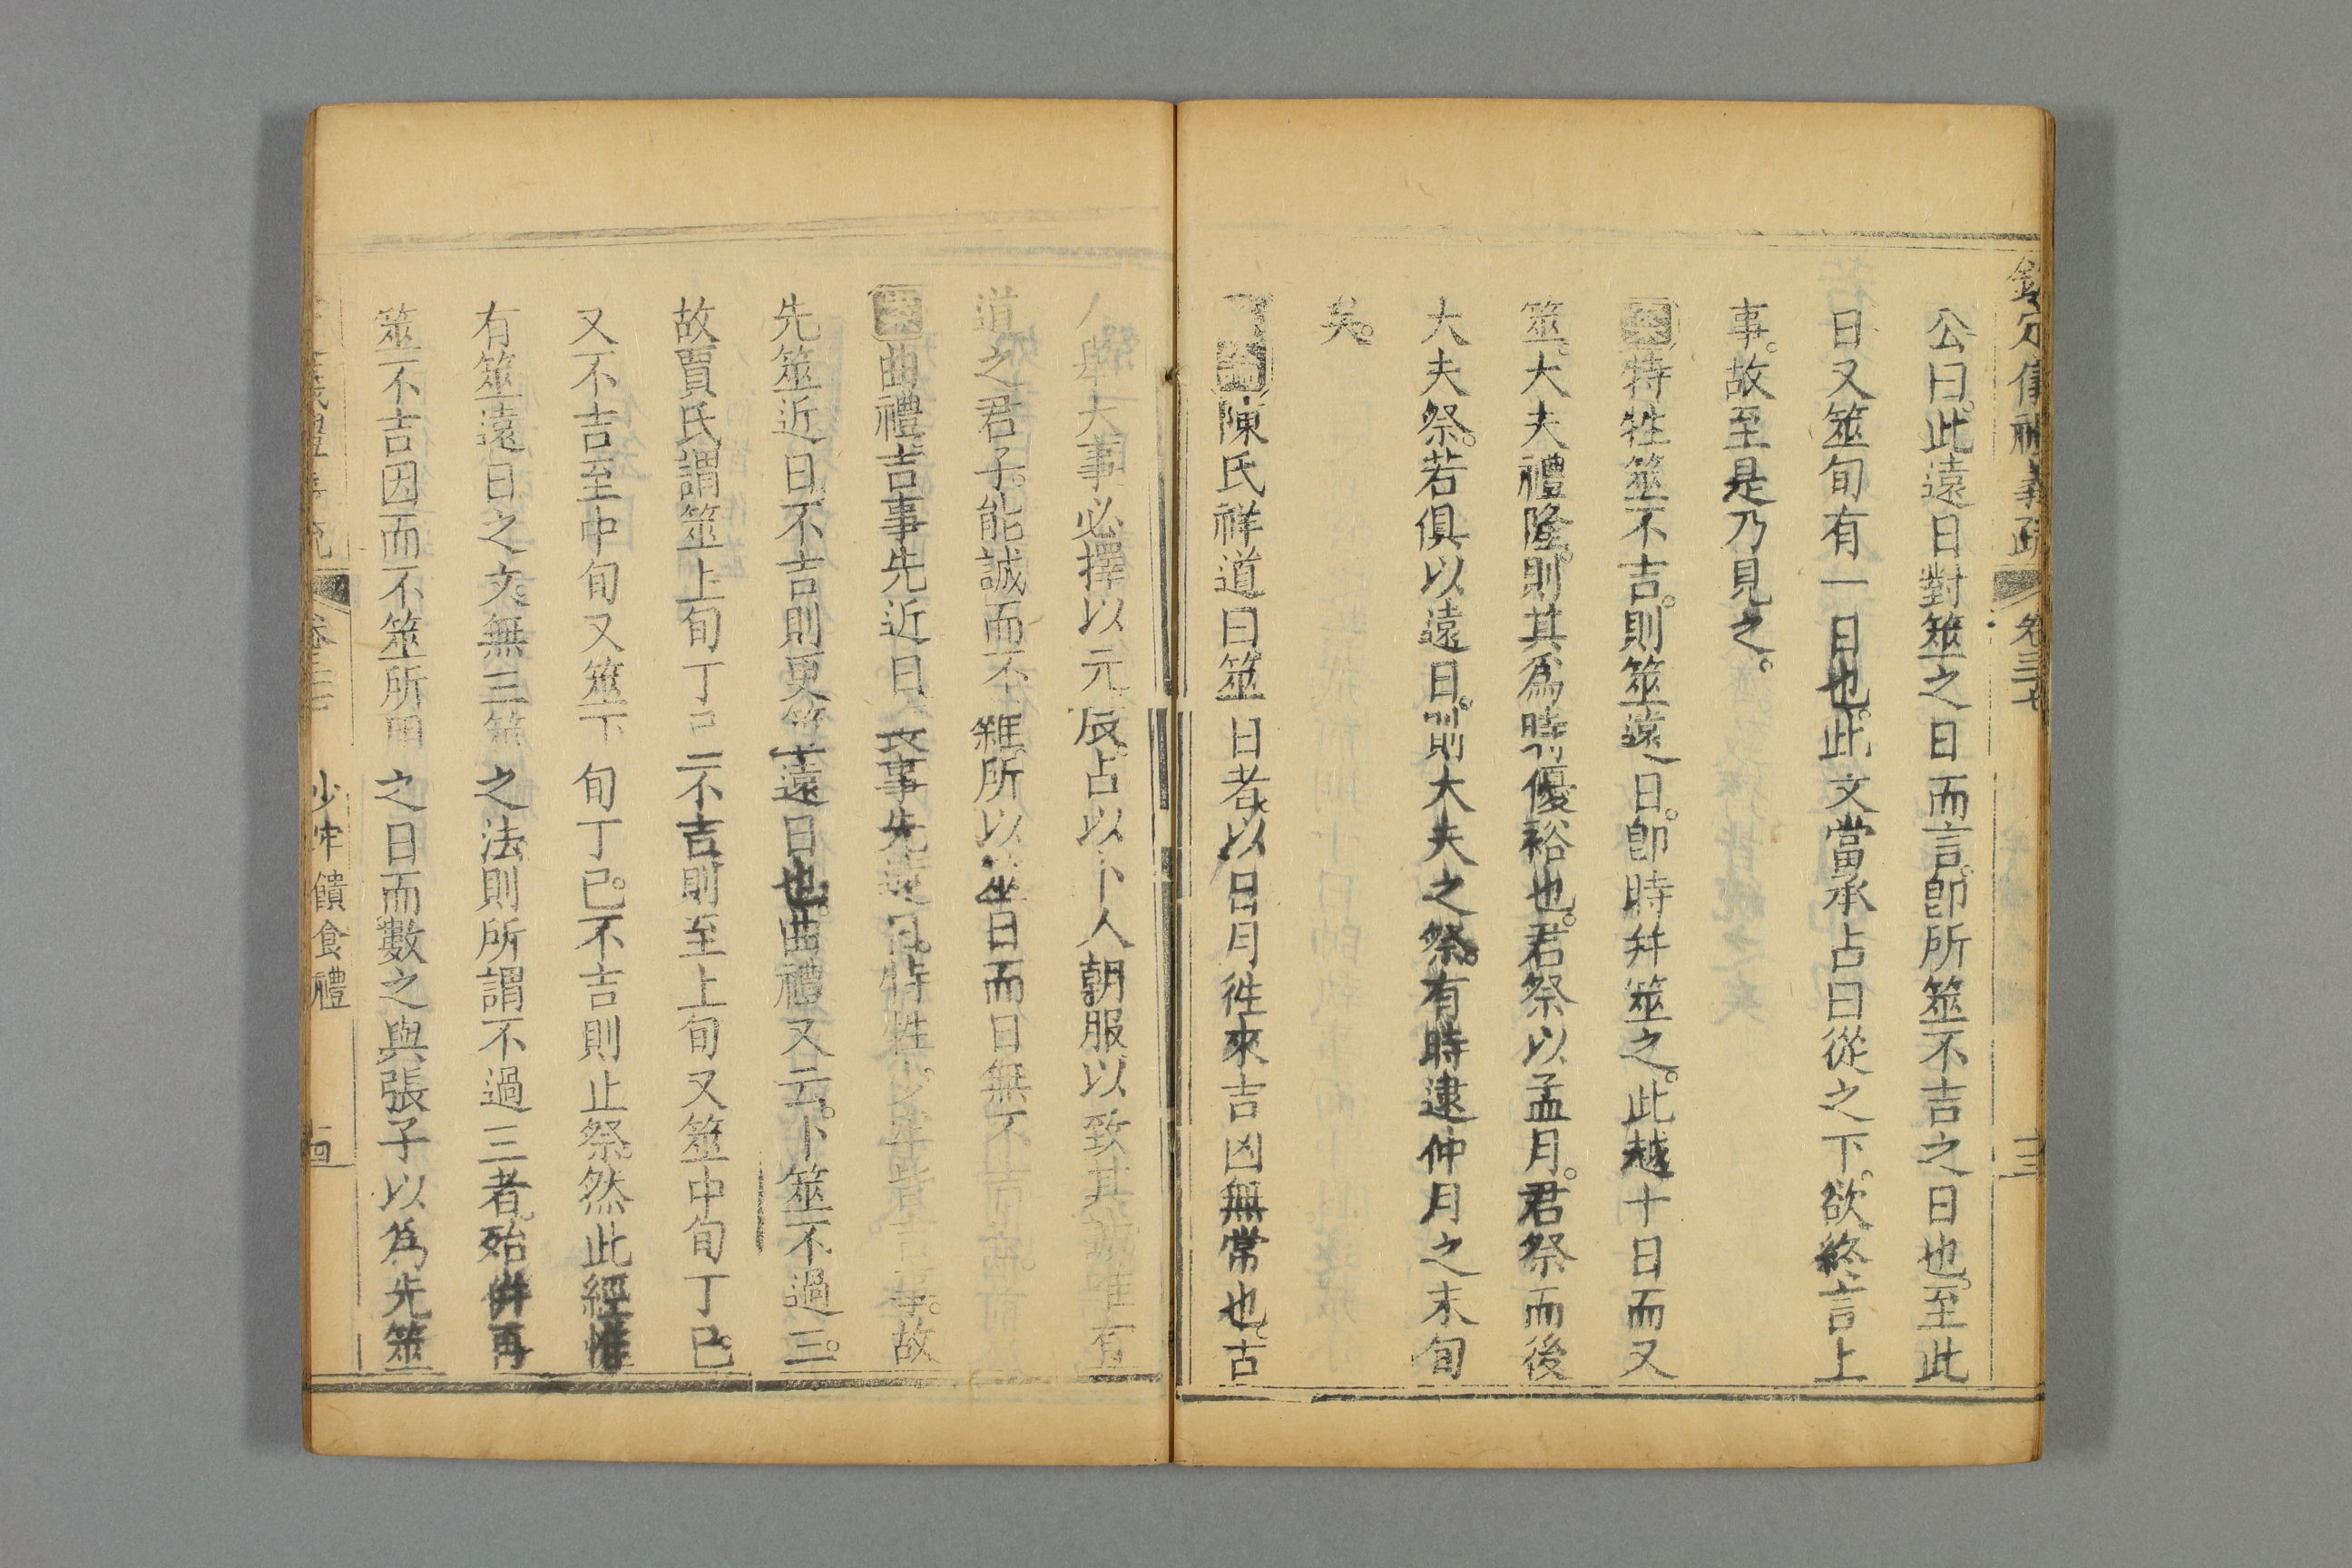 欽定儀禮義疏 卷三七 十三
公曰此遠日對筮之日而言卽所筮不吉之日也至此
日又筮旬有一日也此文當承占曰從之下欲終言上
事故至是乃見之
案特牲筮不吉則筮遠日卽時幷筮之此越十日而又
筮大夫禮隆則其爲時優裕也君祭以孟月君祭而後
大夫祭若俱以遠日則大夫之祭有時逮仲月之末旬
矣
論陳氏祥道曰筮日者以日月徃來吉凶無常也古
人舉大事必擇以元辰占以卜人朝服以致其誠惟有
道之君子能誠而不雜所以筮日而日無不吉
案曲禮吉事先近日喪事先遠日特牲少牢皆吉事故
先筮近日不吉則更筮遠日也曲禮又云卜筮不過三
故賈氏謂筮上旬丁己不吉則至上旬又筮中旬丁己
又不吉至中旬又筮下旬丁己不吉則止祭然此經惟
有筮遠日之文無三筮之法則所謂不過三者殆幷再
筮不吉因而不筮所用之日而數之與張子以爲先筮
少牢饋食禮